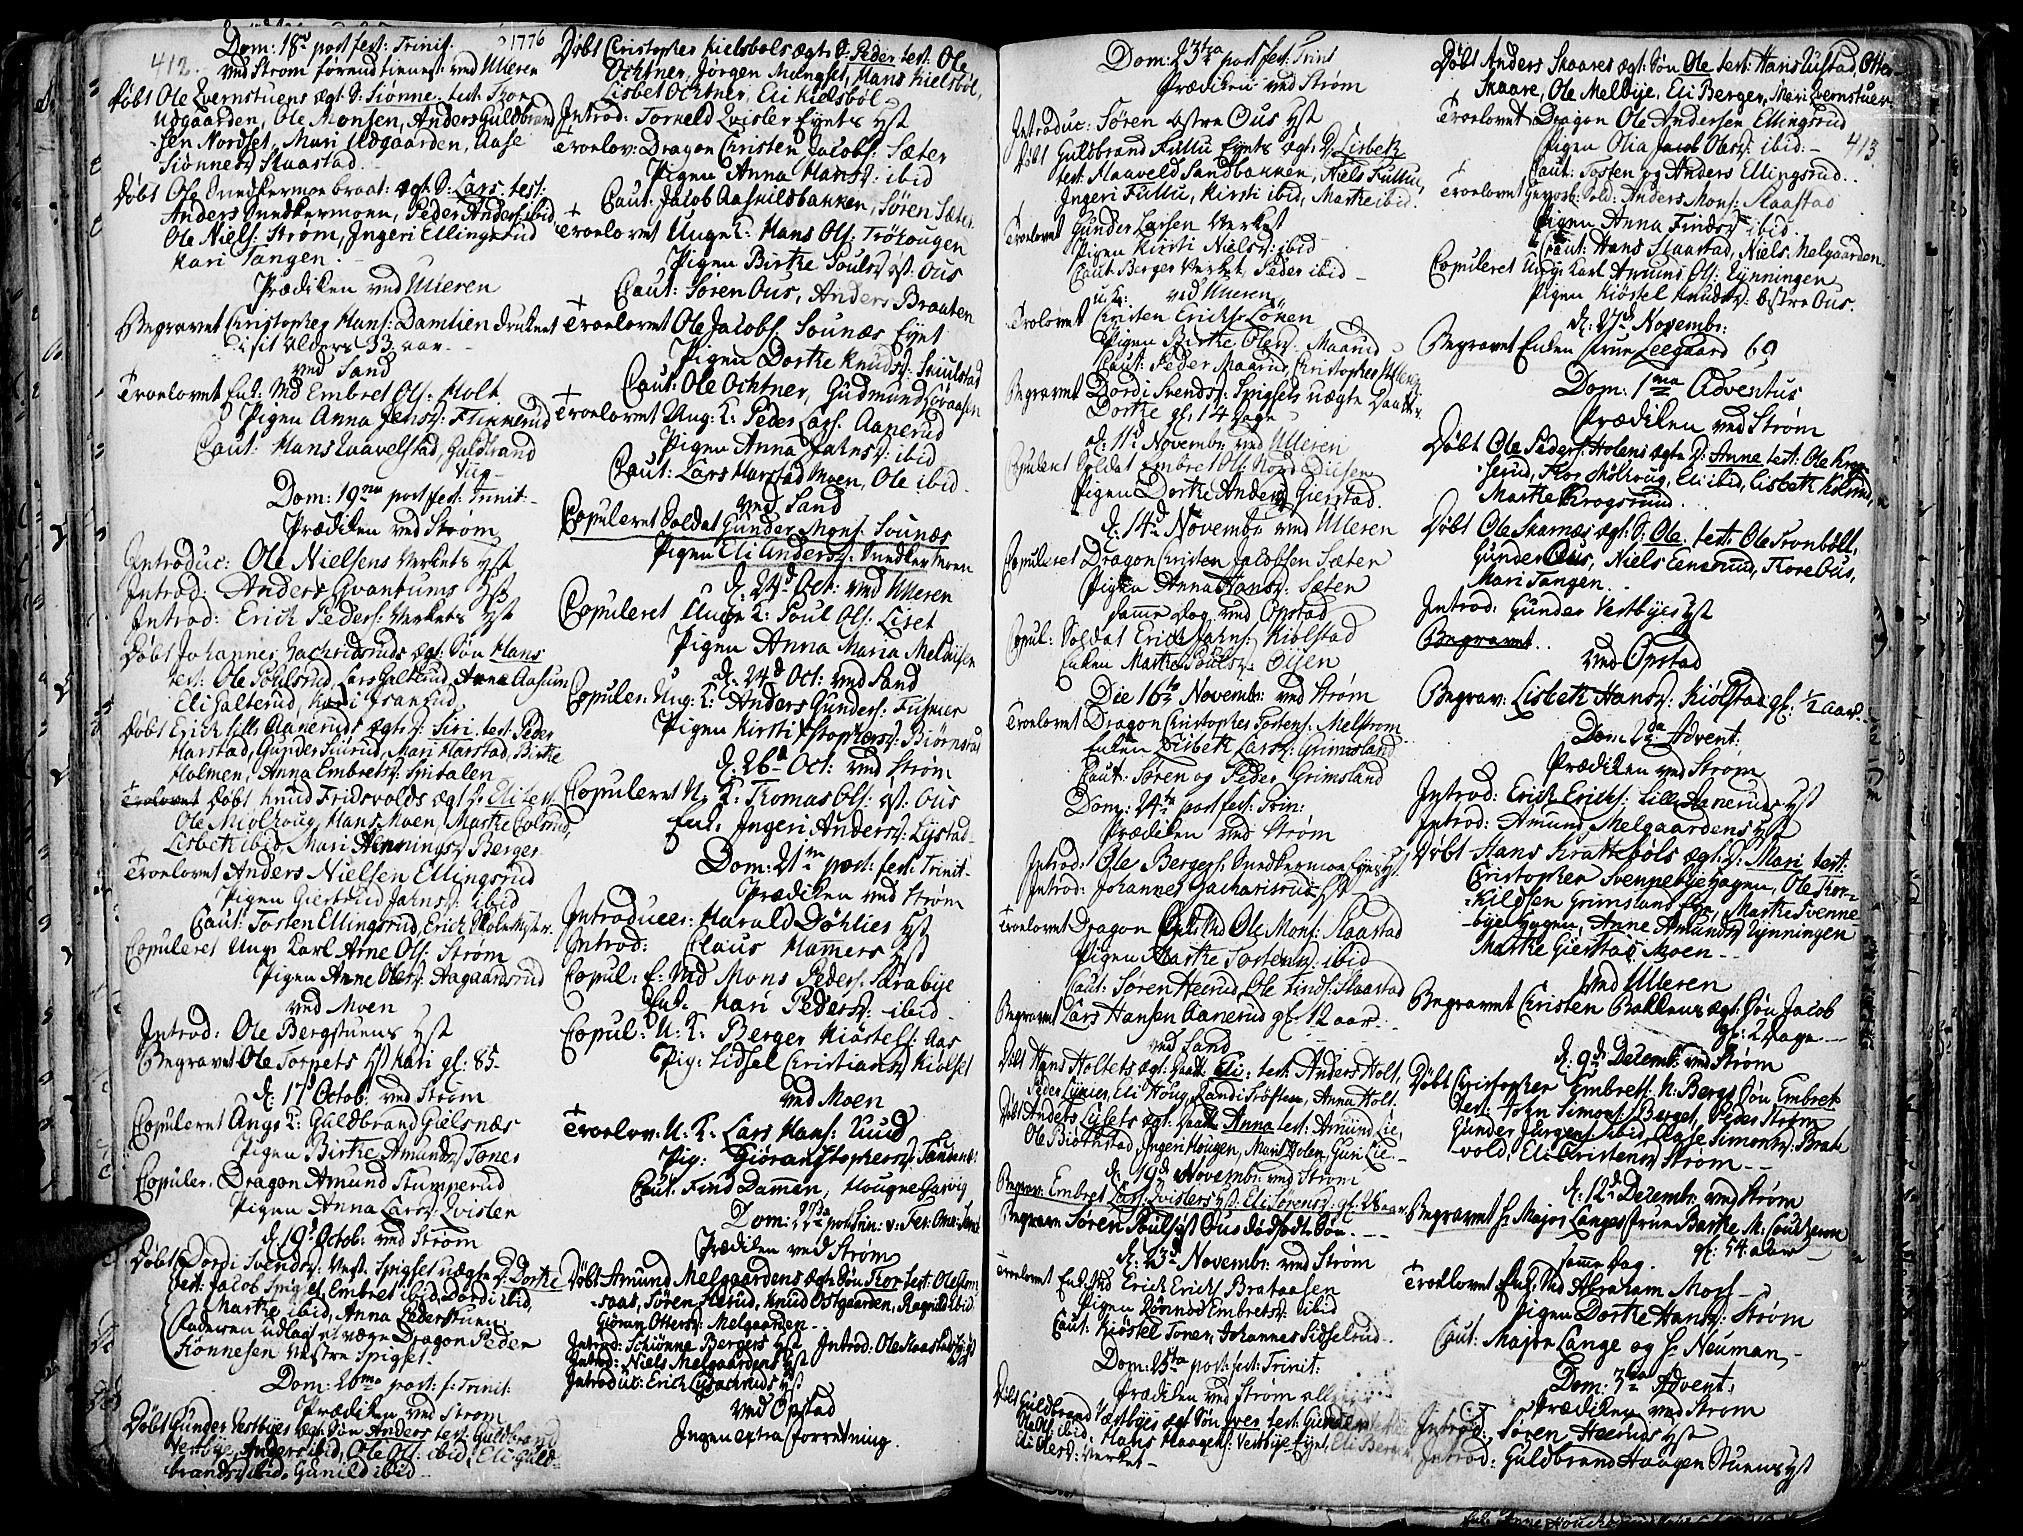 412.
1776
Dom: 18 post fest: Trinit.
ved Strøm ved Ulleren
Døbt Ole Qvernstuens ægt: S: Siønne. test: Thor
Udgaarden, Ole Monsen, Anders Guldbrand
-sen Nordset, Mari Udgaarden, Aase
Siønnesd Skaastad
Døbt Ole Snedkermoe braat: ægt: S: Lars. test:
Anders Snedkermoen, Peder Anders: ibid
Ole Niels: Strøm, Ingeri Ellingsrud
Kari Tangen.
Prædiken ved Ulleren
Begravet Christopher Hans: Damtien druknet
i sit Alders 33. aar.
ved Sand
Troelovet Enk: Md Embret Ols: Holt
Pigen Anna Jensd: Flikkerud
Caut: Hans Qvavelstad, Guldbrand
Dom: 19 post fest: Trinit:
Prædiken ved Strøm
Introduc: Ole Nielsens Verkets Hst
Introd: Anders Qvantums Hst
Introd: Erich Peders: Verkets Hst
Døbt Johannes Zachrisruds ægt: Søn Hans
test: Ole Poulsrud, Lars Galterud, Anne Aasum
Eli Galterud, Kari
Døbt Erich Lille Aaneruds ægt: D: Siri. test: Peder
Harstad, Gunder Suirud, Mari Harstad, Birthe
Holmen, Anna Embretsd: Spitalen
Trolovet Døbt Knud Fridsvolds ægt D: Eli test:
Ole Miølhoug, Hans Moen, Marthe Colsrud,
Lisbeth ibid, Mari Henningsd Berger
Troelovet Anders Nielsen Ellingsrud
Pigen Giertrud Jahnsd: ibid
Caut: Tosten Ellingsrud, Erich Skolemester.
Copuleret Ung: Karl Arne Ols: Strøm
Pigen Anne Olesd: Aagaardsrud
ved Moen
Introd: Ole Bergstuens Hst
Begravet Ole Torpets Hst Kari gl: 85.
d: 17 Octob. ved Strøm
Copuleret Ungk: K: Guldbrand Gielsnæs
Pigen Birthe Amundsd Toner
Copuler: Dragon Amund Stumperud
Pigen Anna Larsd: Qvislen
d: 19 Octob. ved Strøm
Døbt Dordi Svendsd: Vest. Spigset uægte D: Dorthe
test: Jacob Spigset, Embret ibid, Dordi ibid,
Marthe ibid, Anna Pederstuen.
Faderen udlagt at være Dragon Peder
Siønnesen Vestre Spigset.
Dom: 20 post: f: Trinit:
Prædiken ved Strøm
Døbt Gunder Vestbyes ægt: Søn Anders test: Guldbrand
Vestbye, Anders ibid, Ole Ols: ibid, Eli Guld-
brandsd ibid, Gunild ibid
Døbt Christopher Kielsbøls ægt: S: Peder test: Ole
Ochtner, Jørgen Mængset, Hans Kielsbøl,
Lisbet Ochtner, Eli Kielsbøl
Introd: Torkeld Qvisler Eyets Hst
Troelov: Dragon Christen Jacobs: Sæter
Pigen Anna Hansd: ibid
Caut: Jacob Aaskildbakken, Søren Sæter
Troelovet Unge K: Hans Ols: Trøhougen
Pigen Birthe Poulsd øst: Ous
Caut: Søren Ous, Anders Braaten
Troelovet Ole Jacobs: Sounæs Eyet
Pigen Dorthe Knudsd: Skuulstad
Caut: Ole Ochtner, Gudmund Goraasen
Troelovet Ung: K: Peder Lars: Aanerud
Pigen Anna Jahnsd: ibid
Caut: Lars Harstad Moen, Ole ibid
ved Sand
Copuleret Soldat Gunder Mons: Sounæs
Pigen Eli Andersd: Snedkermoen
d: 24 Oct: ved Ulleren
Copuleret Unge K: Poul Ols: Liset
Pigen Anna Maria
d: 24 Oct: ved Sand
Copuler: Ung: K: Anders Gunders: Fusner
Pigen Kirsti Xstophersd: Biørnsrud
d: 26 Oct: ved Strøm
Copuleret U: K: Thomas Ols: øst: Ous
Enk: Ingeri Andersd: Lystad
Dom: 21 post: fest: Trinit-
Prædiken ved Strøm
Introducer: Harald Døhlies Hst
Introd: Claus Hamers Hst
Copul: E: Md Mons Peders: Skrabye
Enk: Kari Pedersd: ibid
Copul: U: K: Berger Kiøstels: Aas
Pig: Sidsel Christiansd Kiølset
ved Moen
Troelov: U: K: Lars Hans: Ruud
Pig: Giøran Xtophersd:
Caut: Find Dammen, Mougne Garvig
Dom: 22 post Trin:
Prædiken ved Strøm
Døbt Amund Melgaardens ægt Søn Thor test: Ole
Søren Heerud, Knud Ostgaarden, Ragnild ibid
Giøran Ottersd: Melgaarden
Introd: Schiønne Bergers Hst Introd: Ole Skaastad
Introd: Niels Melgaardens Hst
Introduc: Erich Lysachruds Hst
ved Opstad
Ingen extra forretning.
Dom: 23 post fest: Trint
Prædiken ved Strøm
Introduc: Søren østre Ous Hst
Døbt Guldbrand Fullu Eyets ægt: D: Lisbeth
test: Haaveld Sandbakken, Niels Fullu,
Ingeri Fullu, Kirsti ibid, Marthe ibid.
Troelovet Gunder Larsen Verket
Pigen Kirsti Nielsd: ibid
Caut: Berger Verket, Peder ibid
ved Ulleren
Trolovet Christen Erichs: Løken
Pigen Birthe Olesd: Maarud
Caut: Peder Maarud, Christopher Ulleren
Begravet Dordi Svendsd: Spigsets uægte Daatter
Dorthe gl. 14 Dage
d: 11 Novembr: ved Ulleren
Copuleret Soldat Embret Ols: Nord
Pigen Dorthe Andersd Gierstad.
d: 14 Novembr ved Ulleren
Copuleret Dragon Christen Jacobsen Sæter
Pigen Anna Hansd: Sæter
samme dag ved Opstad
Copul: Soldat Erich Jahns: Kiølstad
Enken Marthe Poulsd: Øijen
Die 16 Novembr: ved Strøm
Troelovet Dragon Christopher Tostens: Melstrom
Enken Lisbeth Larsd: Grimsland
Caut: Søren og Peder Grimsland
Dom: 24 post fest: Trin:
Prædiken ved Strøm
Introd: Ole Bergers: Snedkermoe Eyes Hst.
Introd: Johannes Zacharisrud Hst
Troelovet Dragon Enk: Md Ole Mons: Skaastad
Pigen Marthe Tostensd: ibid
Caut: Søren Heerud, Ole Finds: Skaastad
Begravet Lars Hansen Aanerud gl: 12 aar.
ved Sand
Døbt Hans Holtets ægt: Daatt: Eli: test: Anders Holt,
Peder Lynier, Eli Houg, Randi Sløften, Anna Holt.
Døbt Anders Lysets ægt: Daatt: Anna test: Amund Lie,
Ole Biøthstad, Ingeri Hougen, Marit Holen, Guri Lie.
d: 19 Novembr: ved Strøm
Begrav: Embret Lars: Qvislers Hst: Eli Sørensd: gl: 28 aar.
Begraven Søren Pouls: øst Ous dødfødt Søn.
d: 23 Novembr: ved Strøm
Troelovet Enk: Md Erich Erichs Brataasen
Pigen Rønnov Embretsd: ibid
Caut: Kiøstel Toner, Johannes Sidselrud.
Dom: 25 post: fest: Trinit:
Prædiken ved Strøm
Døbt Guldbrand Vestbyes ægt Søn Iver test: Gunder
Ole Ols: ibid: Hans Haagens: Vestbye Eyet, Eli Berger
Eli Olesd: Verket
413.
Døbt Anders Skaares ægt: Søn Ole test: Hans Lustad, Otter
Skaare, Ole Melbye, Eli Berger, Mari Qvernstuen
Troelovet Dragon Ole Andersen Ellingsrud
Pigen Olia Jacob Olesd: ibid:
Caut: Tosten og Anders Ellingsrud.
Troelovet Gevorb: Sold: Anders Mons: Skaastad
Pigen Anna Findsd: ibid.
Caut: Hans Skaastad, Niels Melgaarden
Copuleret Ung: Karl Amund Ols: Lynningen
Pigen Kiøstel Knudsd: østre Ous.
d: 27 Novembr:
Begravet Enken Frue Leegaard 69
Dom: 1 Adventus
Prædiken ved Strøm
Døbt Ole Peders: Holens ægte D: Anne test: Ole Krog-
serud, Thor Skolhoug, Eli ibid, Lisbeth Kolsrud,
Marthe Krogsrud.
Døbt Ole Skarnæs ægt: S: Ole. test: Ole Tronbøll,
Gunder Ous, Niels Eensrud, Thore Ous,
Mari Tangen.
Introd: Gunder Vestbyes Hst
Begravet.
ved Opstad
Begrav: Lisbeth Hansd: Kiølstad gl: 1/2 aar.
Dom: 2 Advent:
Prædiken ved Strøm
Introd: Erich Erichs: Lille Aaneruds Hst
Introd: Amund Melgaardens Hst
Døbt Hans Krattebøls ægt: D: Mari test:
Christopher Svennebyehagen, Ole Tor-
-kildsen Grimsland, Marthe Svenne-
-bye Hagen, Anne Amundsd Lynningen
Mathe Gierstad Moen
Ved Ulleren
Begravet Christen Bakkens ægt: Søn Jacob
gl: 2 Dage
d. 9 Decembr ved Strøm
Døbt Christopher Embrets: N: Bergs Søn Embret
test: John Simons: Berget, Peder Strøm
Gunder Jurgens: ibid, Aase Simonsd: Brat
vold, Eli Christensd Strøm
d: 12 Decembr: ved Strøm
Begravet Hr Major Langes Frue Barthe M:
gl: 54: aar
samme dag.
Troelovet Enk: Md Abraham Moss
Pigen Dorthe Hansd: Strøm
Caut: Major Lange og Hr Neuman
Dom: 3 Advent:
Prædiken ved Strøm
Introd: Søren Heeruds Hst
Introd: Guldbrand Haagen Stuens Hst